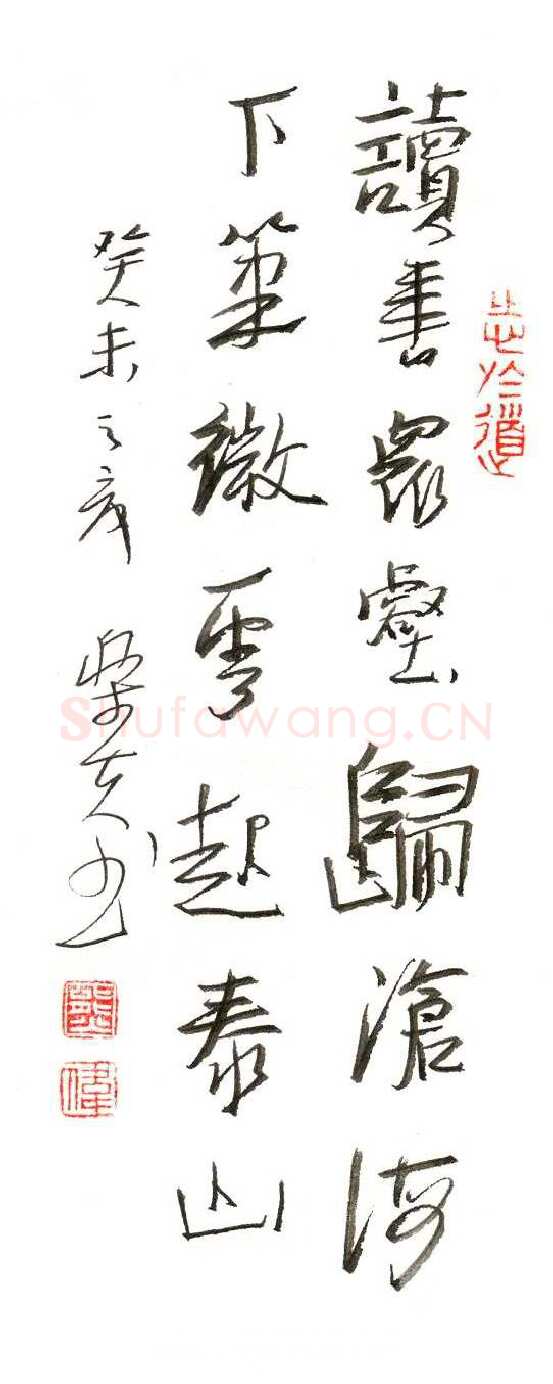 讀書眾壑歸滄海
下筆微雲起泰山
癸未之夜
志於道
Shufawang.CN